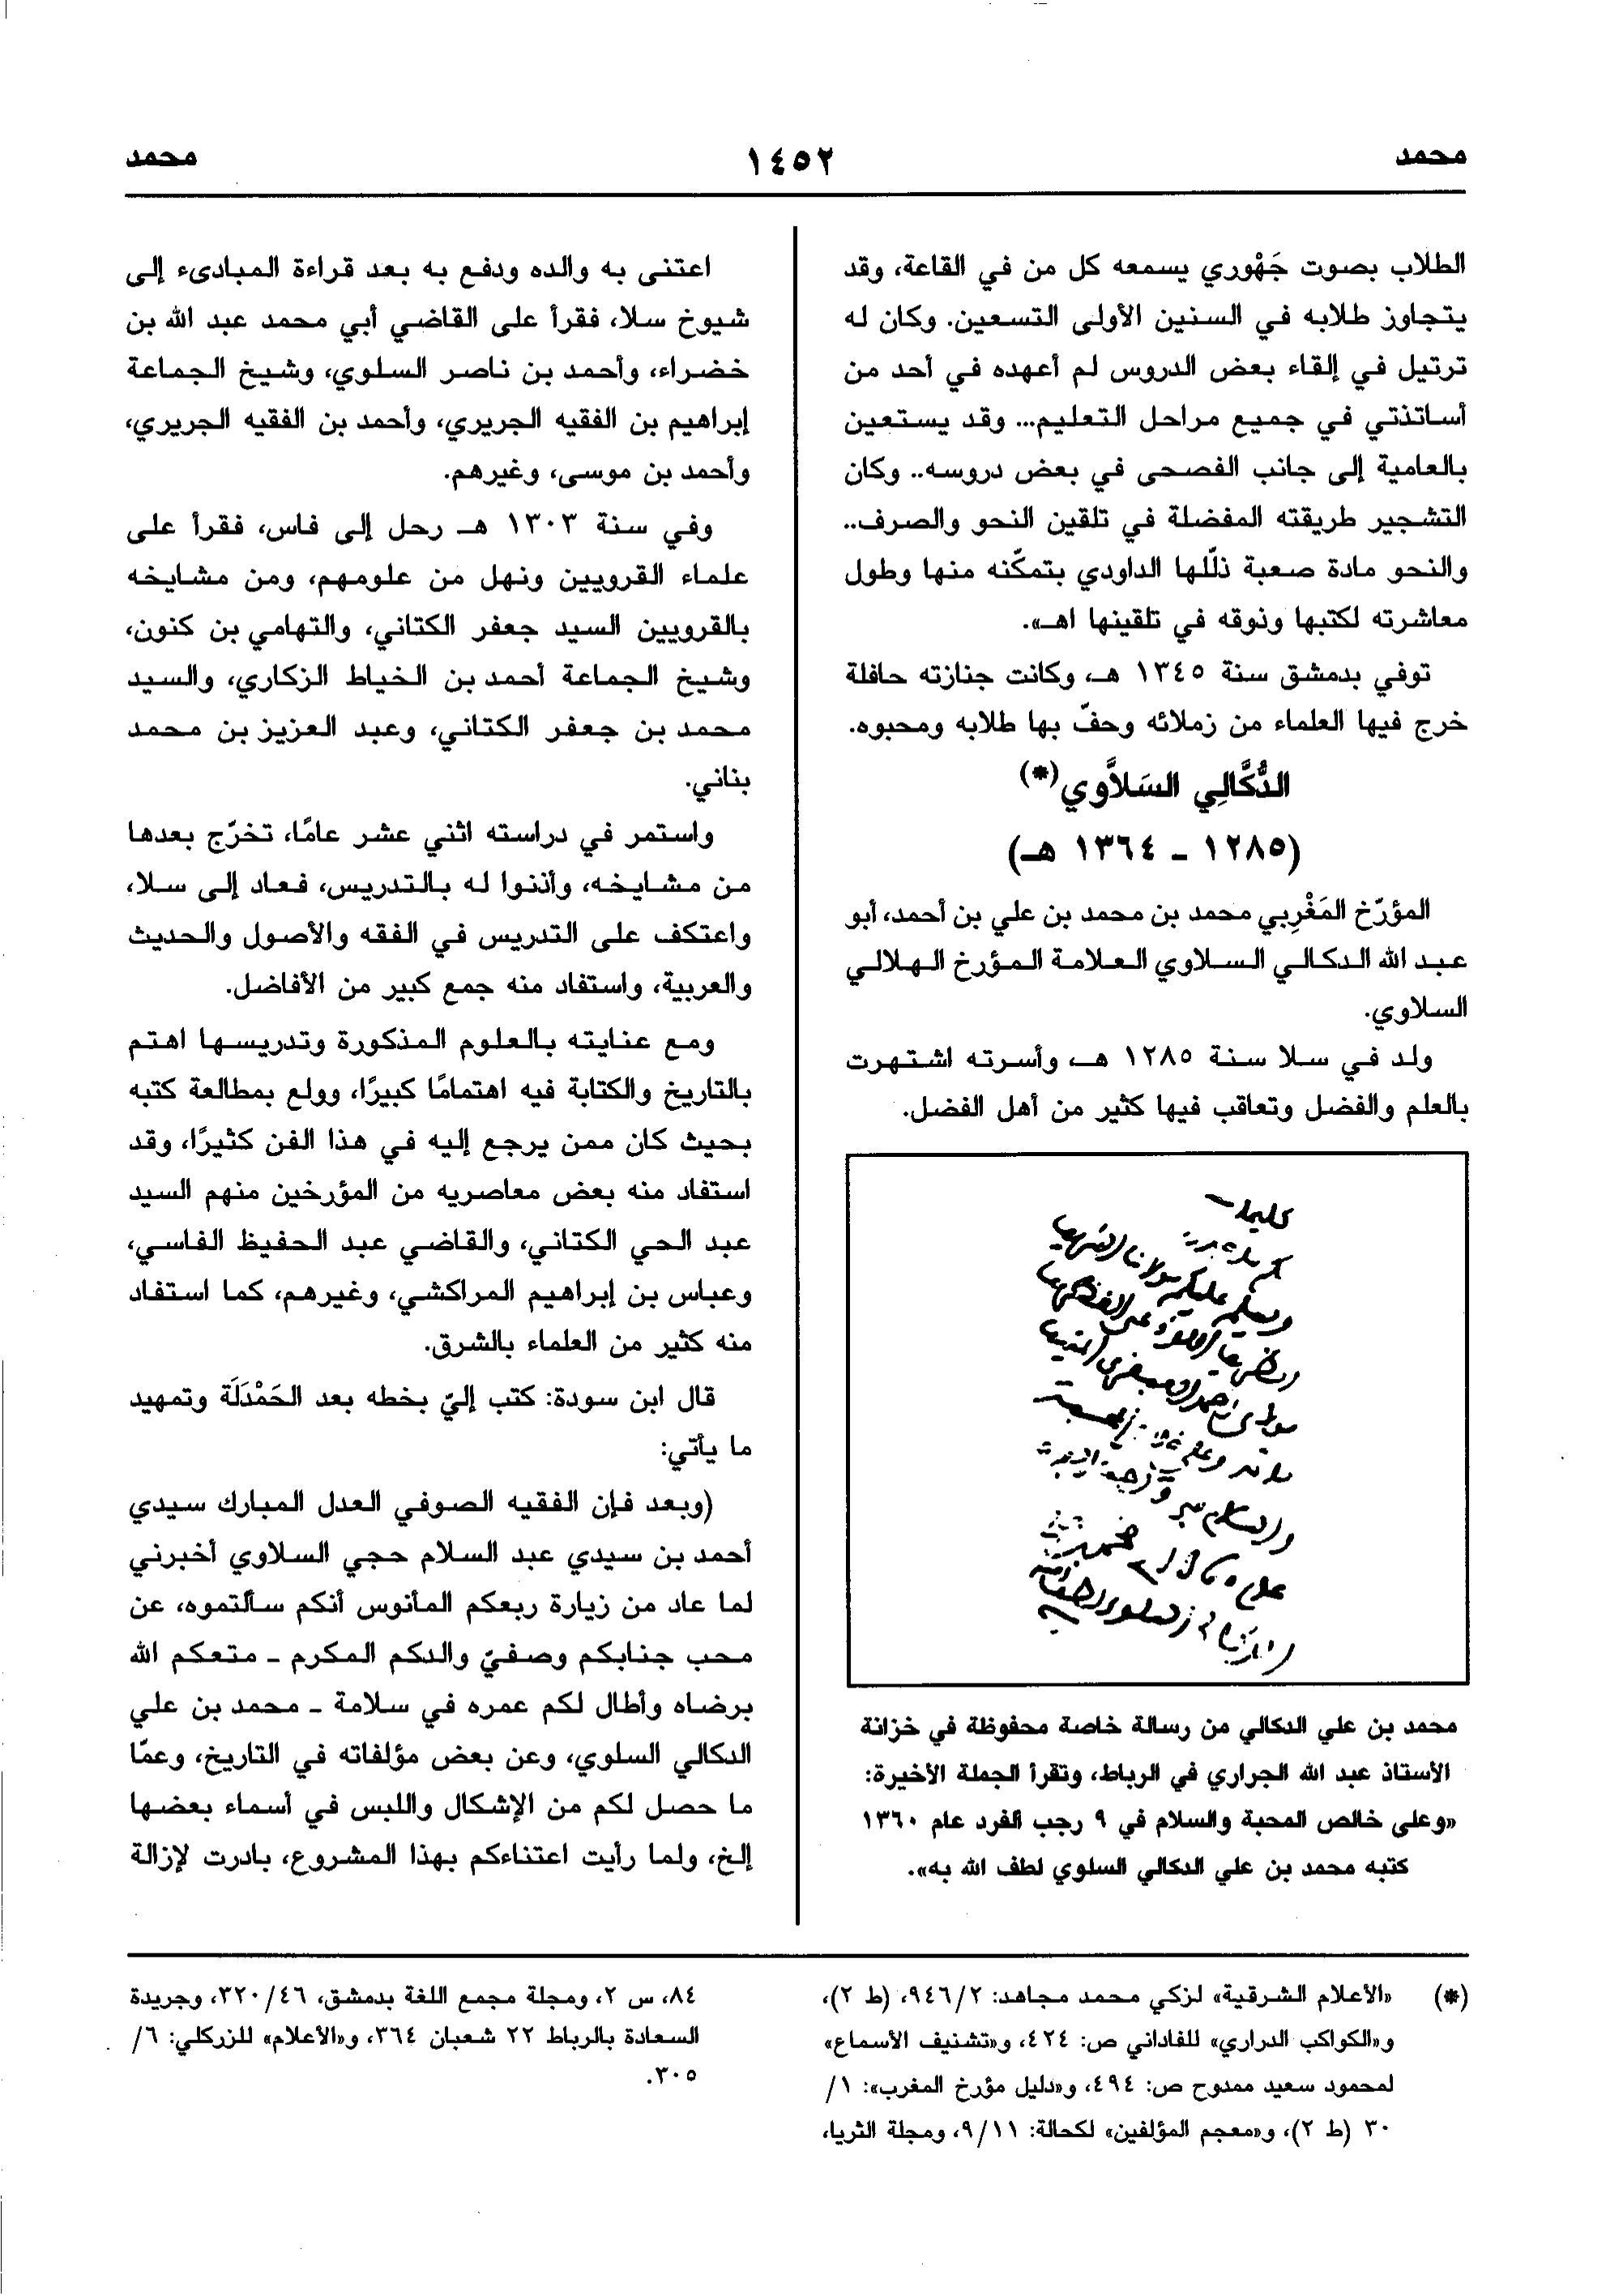 محمد
١٤٥٢
محمد
الطلاب بصوت جَهْوري يسمعه كل من في القاعة، وقد
يتجاوز طلابه في السنين الأولى التسعين. وكان له
ترتيل في إلقاء بعض الدروس لم أعهده في أحد من
أساتذتي في جميع مراحل التعليم... وقد يستعين
بالعامية إلى جانب الفصحى في بعض دروسه.. وكان
التشجير طريقته المفضلة في تلقين النحو والصرف..
والنحو مادة صعبة ذلّلها الداودي بتمكّنه منها وطول
معاشرته لكتبها وذوقه في تلقينها اهـ».
توفي بدمشق سنة ١٣٤٥ هـ، وكانت جنازته حافلة
خرج فيها العلماء من زملائه وحفّ بها طلابه ومحبوه.
الدُّكَّالِي السَلاَّوي(*)
(١٢٨٥ ـ ١٣٦٤ هـ)
المؤرّخ المَغْرِبي محمد بن محمد بن علي بن أحمد، أبو
عبد الله الدكالي السلاوي العلامة المؤرخ الهلالي
السلاوي.
ولد في سلا سنة ١٢٨٥ هـ، وأسرته اشتهرت
بالعلم والفضل وتعاقب فيها كثير من أهل الفضل.
محمد بن علي الدكالي من رسالة خاصة محفوظة في خزانة
الأستاذ عبد الله الجراري في الرباط، وتقرأ الجملة الأخيرة:
«وعلى خالص المحبة والسلام في ٩ رجب الفرد عام ١٣٦٠
كتبه محمد بن علي الدكالي السلوي لطف الله به».
اعتنى به والده ودفع به بعد قراءة المبادىء إلى
شيوخ سلا، فقرأ على القاضي أبي محمد عبد الله بن
خضراء، وأحمد بن ناصر السلوي، وشيخ الجماعة
إبراهيم بن الفقيه الجريري، وأحمد بن الفقيه الجريري،
وأحمد بن موسى، وغيرهم.
وفي سنة ١٣٠٣ هـ رحل إلى فاس، فقرأ على
علماء القرويين ونهل من علومهم، ومن مشايخه
بالقرويين السيد جعفر الكتاني، والتهامي بن كنون،
وشيخ الجماعة أحمد بن الخياط الزكاري، والسيد
محمد بن جعفر الكتاني، وعبد العزيز بن محمد
بناني.
واستمر في دراسته اثني عشر عامًا، تخرّج بعدها
من مشايخه، وأذنوا له بالتدريس، فعاد إلى سلا،
واعتكف على التدريس في الفقه والأصول والحديث
والعربية، واستفاد منه جمع كبير من الأفاضل.
ومع عنايته بالعلوم المذكورة وتدريسها اهتم
بالتاريخ والكتابة فيه اهتمامًا كبيرًا، وولع بمطالعة كتبه
بحيث كان ممن يرجع إليه في هذا الفن كثيرًا، وقد
استفاد منه بعض معاصريه من المؤرخين منهم السيد
عبد الحي الكتاني، والقاضي عبد الحفيظ الفاسي،
وعباس بن إبراهيم المراكشي، وغيرهم، كما استفاد
منه كثير من العلماء بالشرق.
قال ابن سودة: كتب إليّ بخطه بعد الحَمْدَلَة وتمهيد
ما يأتي:
(وبعد فإن الفقيه الصوفي العدل المبارك سيدي
أحمد بن سيدي عبد السلام حجي السلاوي أخبرني
لما عاد من زيارة ربعكم المأنوس أنكم سألتموه، عن
محب جنابكم وصفيّ والدكم المكرم ـ متعكم الله
برضاه وأطال لكم عمره في سلامة ـ محمد بن علي
الدكالي السلوي، وعن بعض مؤلفاته في التاريخ، وعمّا
ما حصل لكم من الإشكال واللبس في أسماء بعضها
إلخ، ولما رأيت اعتناءكم بهذا المشروع، بادرت لإزالة
(*) «الأعلام الشرقية» لزكي محمد مجاهد: ٩٤٦/٢، (ط ٢)،
و«الكواكب الدراري» للفاداني ص: ٤٢٤، و«تشنيف الأسماع»
لمحمود سعيد ممدوح ص: ٤٩٤، و«دليل مؤرخ المغرب»: ١/
٣٠ (ط ٢)، و«معجم المؤلفين» لكحالة: ٩/١١، ومجلة الثريا،
٨٤، س ٢، ومجلة مجمع اللغة بدمشق، ٣٢٠/٤٦، وجريدة
السعادة بالرباط ٢٢ شعبان ٣٦٤، و«الأعلام» للزركلي: ٦/
٣٠٥.